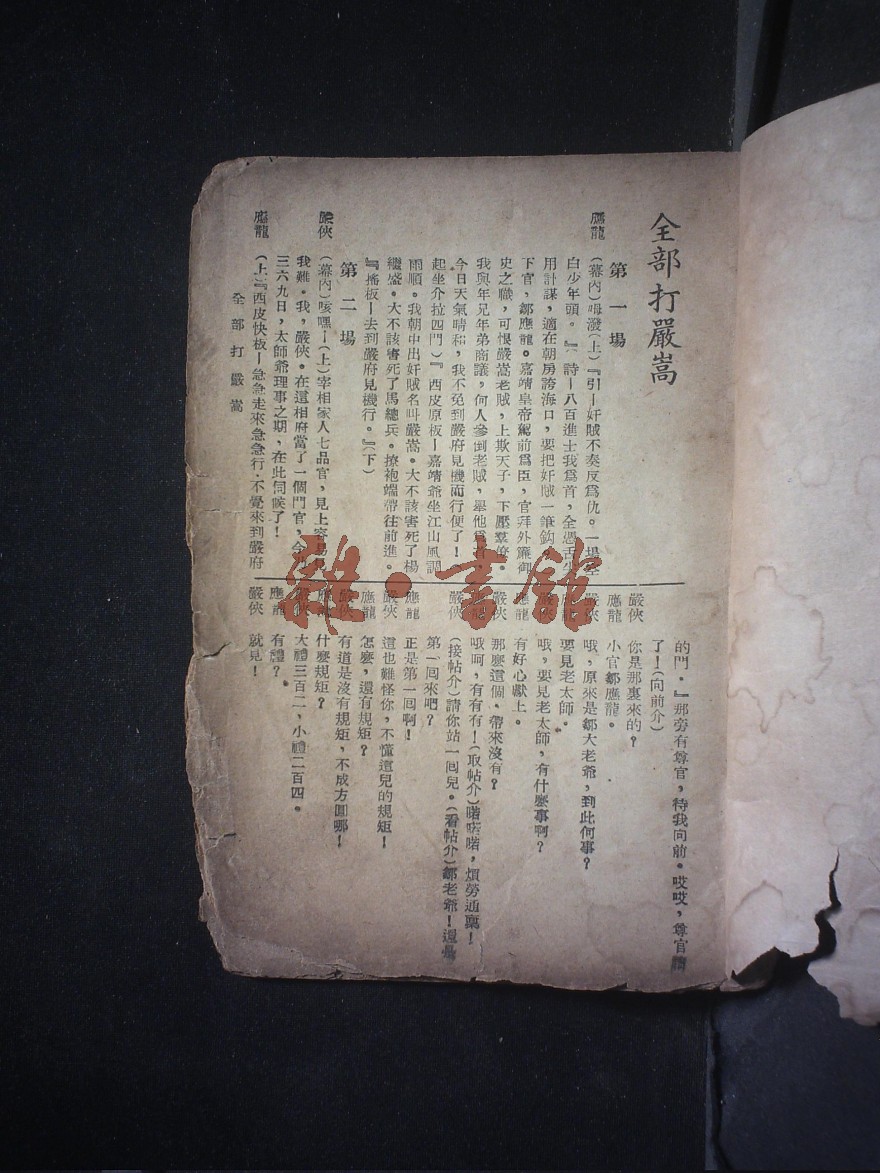 全部打嚴嵩
第一場
應龍 (幕內)嗯潑(上)『引—奸賊不奏反爲仇。一場空
白少年頭。『『詩—八百進士我爲首,全憑舌尖
用計謀,適在朝房誇海口,要把奸賊一筆鈎
下官,鄒應龍。嘉靖皇帝駕前爲臣,官拜外簾御
史之職,可恨嚴嵩老賊,上欺天子,下壓羣僚
我與年兄年弟商議,何人參倒老賊,舉他爲
今日天氣晴和,我不免到嚴府見機而行便了!
起坐介拉四門)『西皮原板—嘉靖爺坐江山風調
雨順。我朝中出奸賊名叫嚴嵩。大不該害死了楊
繼盛。大不該害死了馬總兵。撩袍端帶往前進。
『搖板—去到嚴府見機行。』(下)
第二場
嚴俠 (幕內)咳嘿!(上)宰相家人七品官,見上容易見
我難。我,嚴俠。在這相府當了一個門官,今
三六九日,太師爺理事之期,在此伺候了!
應龍 (上『西皮快板—急急走來急急行.不覺來到嚴府
全部打嚴嵩
的門。』那旁有尊官,待我向前。哎哎,尊官請
了!(向前介)
嚴俠 你是那裏來的?
應龍 小官鄒應龍。
嚴俠 哦,原來是鄒大老爺,到此何事?
應龍 要見老太師。
嚴俠 哦,要見老太師,有什麼事啊?
應龍 有好心獻上。
嚴俠 那麼這個、帶來沒有?
應龍 哦呵,有有有!(取帖介)喏喏喏,煩勞通稟!
嚴俠 (接帖介)請你站一囘兒。(看帖介)鄒老爺!還是
第一囘來吧?
應龍 正是第一囘啊!
嚴俠 這也難怪你,不懂這兒的規矩!
應龍 怎麼,還有規矩?
嚴俠 有道是沒有規矩,不成方圓哪!
應龍 什麼規矩?
嚴俠 大禮三百二,小禮二百四。
應龍 有禮?
嚴俠 就見!
雜·書館